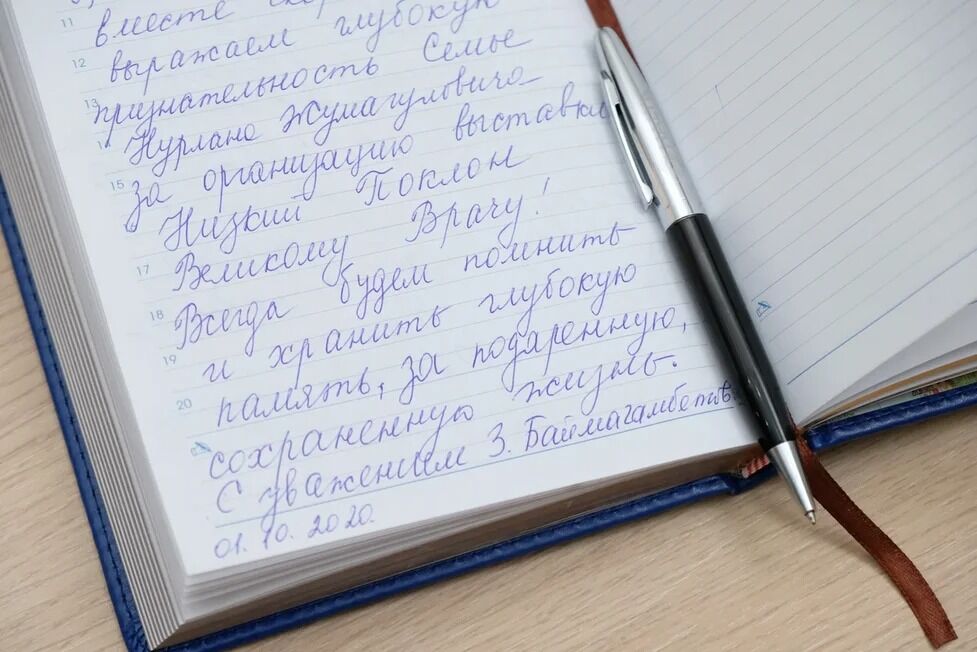 11
вместе
12
выражаем глубокую
13
признательность Семье
14
Нурлана Жумагуловича
15
за организацию выставки
Низкий Поклон
17
Великому Врачу!
18
Всегда будем помнить
19
и хранить глубокую
20
память, за подаренную,
сохраненную жизнь.
С уважением З. Баймагамбетов
01.10.2020.